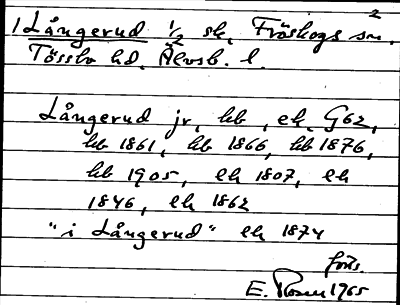 2
1 Långerud 1/2 sk. Fröskogs sn.
Tössbo hd. Älvsb. l.
Långerud jr, hb , ek. G62,
hb 1861, hb 1866, hb 1876,
hb 1905, ek 1807, ek
1846, ek 1862
"i Långerud" ek 1874
forts.
E. Rosen 1965